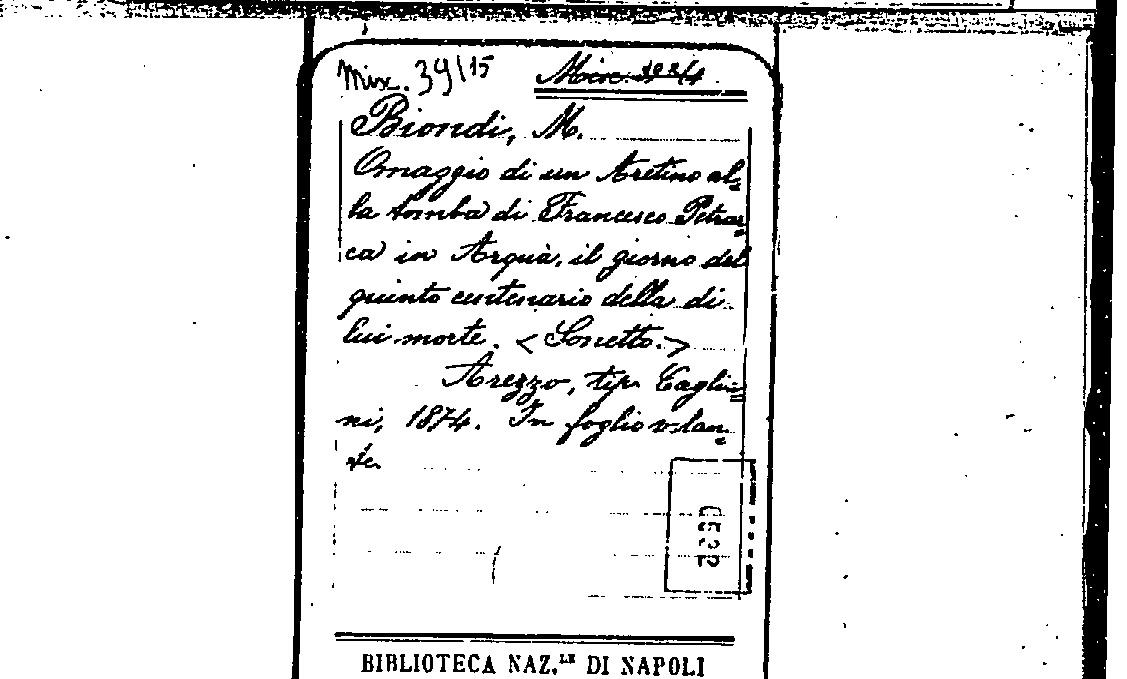 Mix. 39/15
Biondi, M.
Omaggio di un Aretino al=
la tomba di Francesco Petrar=
ca in Arquà, il giorno del
quinto centenario della di
lui morte. <Sonetto.>
Arezzo, tip. Caglie=
ni, 1874. In foglio volan=
te.
0522
BIBLIOTECA NAZ.LE DI NAPOLI